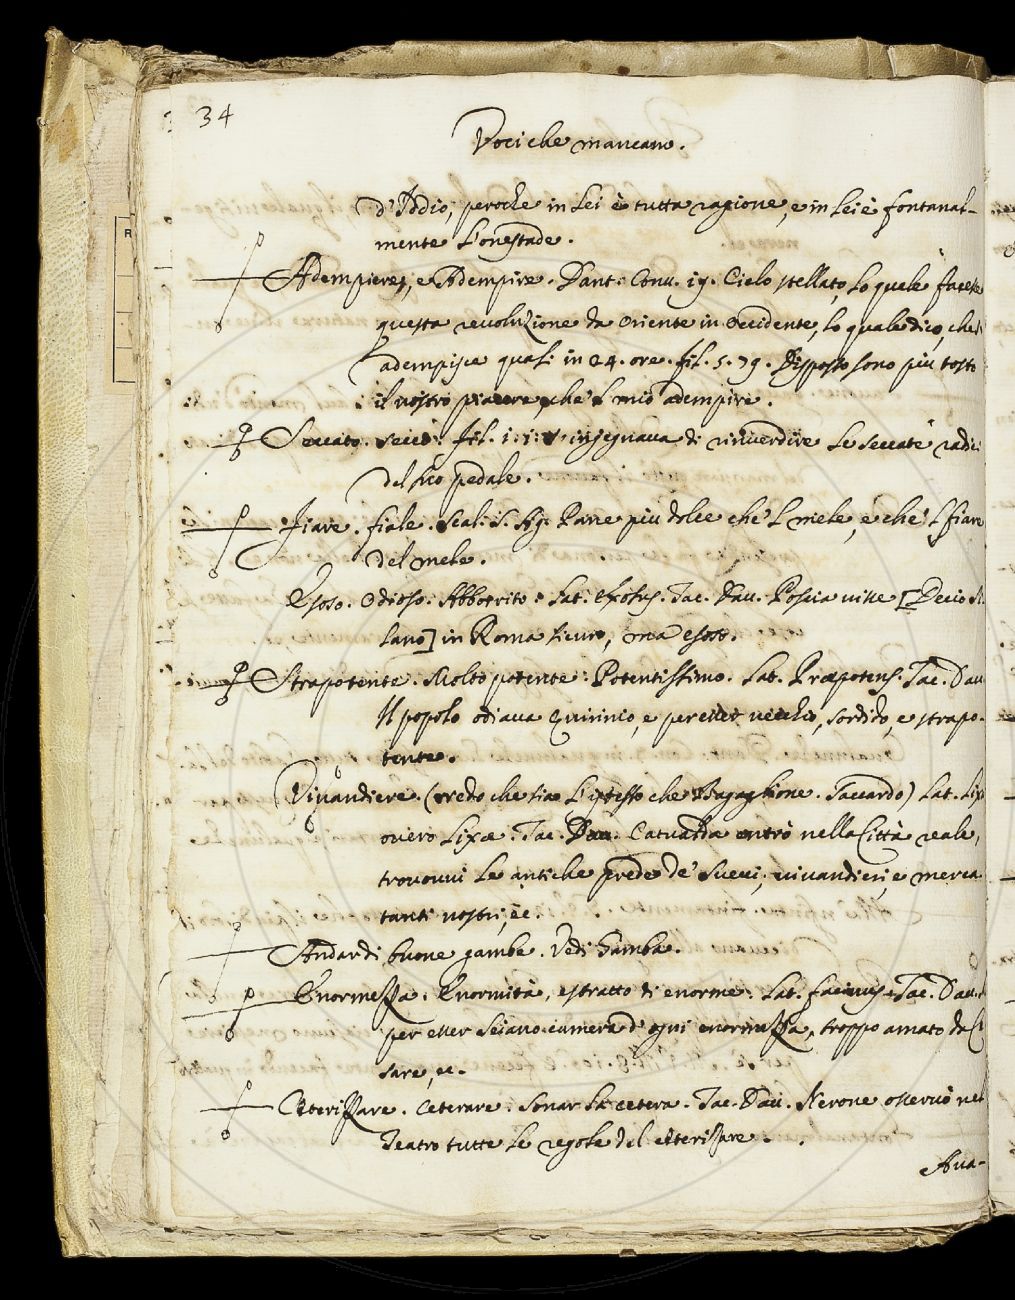 34
Voci che mancano.
d'Iddio, peroche in Lei è tutta ragione, e in lei è fontanal-
mente l'onestade.
Adempiere, e Adempire. Dant. Conv. 19. Cielo stellato, lo quale facesse
questa revoluzione da Oriente in Occidente, lo quale dico, che
adempisce quasi in 24. ore. fil. 5. 79. Disposto sono più tosto
il vostro piacere, che'l mio adempire.
Seccato. fil. 1. 1. ingegnava di rinverdire le seccate radici
del suo pedale.
fiare. fiale. Scal. S. Ag. Parve più dolce che'l mele, e che'l fiare
del mele.
Esoso. Odioso. Abborrito. Lat. Exosus. Tac. Dav. Poscia visse [Decio Si-
lano] in Roma sicuro, ma esoso.
Strapotente. Molto potente. Potentissimo. Lat. Præpotens. Tac. Dav
Il popolo odiava Quirinio, e per esser vecchio, sordido, e strapo-
tente.
Vivandiere. (credo che sia l'istesso che Bagaglione. Saccardo) Lat. Lixa
overo Lixæ. Tac. Dav. Catualda entrò nella Città reale,
trovovvi le antiche prede de' Suevi, vivandieri, e merca
tanti nostri, ec.
Andar di buone gambe. Vedi Gamba.
Enormezza. Enormità, estratto di enorme. Lat. facinus. Tac. Dav.
per esser Seiano camera d'ogni enormezza, troppo amato da Ce
sare, ec.
Ceterizzare. Ceterare. Sonar la cetera. Tac. Dav. Nerone osservò nel
Teatro tutte le regole del ceterizzare.
Ava-